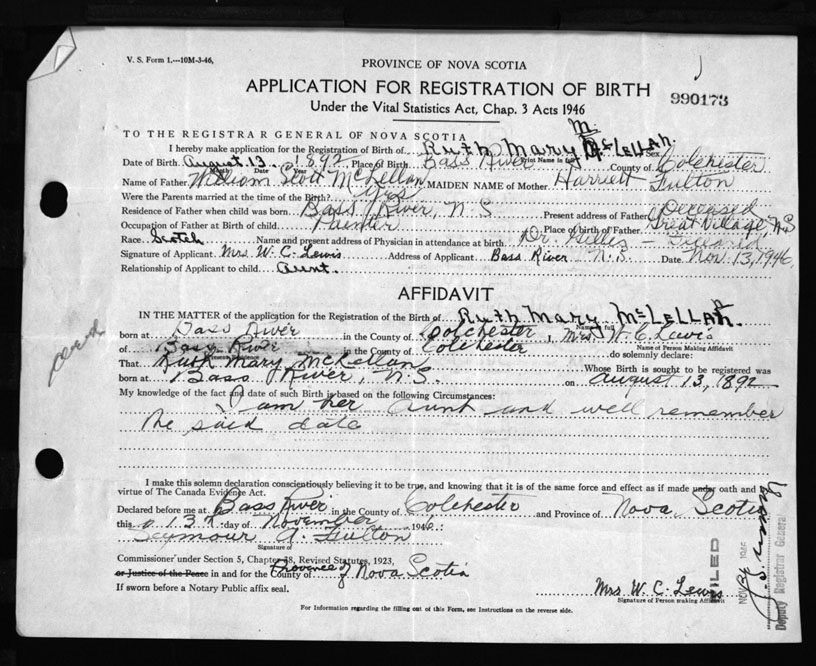 V. S. Form 1.—10M-3-46,
PROVINCE OF NOVA SCOTIA
APPLICATION FOR REGISTRATION OF BIRTH
990173
Under the Vital Statistics Act, Chap. 3 Acts 1946
TO THE REGISTRAR GENERAL OF NOVA SCOTIA
I hereby make application for the Registration of Birth of Ruth Mary McLellan. Sex
Print Name in full
Date of Birth August 13. 1892 Place of Birth Bass River County of Colchester
Month Date Year
Name of Father William Scott McLellan MAIDEN NAME of Mother Harriett Fulton
Were the Parents married at the time of the Birth? Yes
Residence of Father when child was born Bass River, N.S Present address of Father Deceased
Occupation of Father at Birth of child Painter Place of birth of Father Great Village, N.S
Race Scotch Name and present address of Physician in attendance at birth Dr. —
Signature of Applicant Mrs W. C. Lewis Address of Applicant Bass River N.S. Date Nov 13, 1946
Relationship of Applicant to child Aunt.
AFFIDAVIT
IN THE MATTER of the application for the Registration of the Birth of Ruth Mary McLellan.
Name in full
born at Bass River in the County of Colchester, Mrs W. C. Lewis
Name of Person Making Affidavit
of Bass River in the County of Colchester do solemnly declare:
Present Residence
That Ruth Mary McLellan Whose Birth is sought to be registered was
born at Bass River, N.S. on August 13, 1892
My knowledge of the fact and date of such Birth is based on the following Circumstances:
I am her Aunt and well remember
the said date
I make this solemn declaration conscientiously believing it to be true, and knowing that it is of the same force and effect as if made under oath and by
virtue of The Canada Evidence Act.
Declared before me at Bass River in the County of Colchester and Province of Nova Scotia
this 13th day of November 1946.
Seymour A. Fulton
Signature of
Commissioner under Section 5, Chapter 38, Revised Statutes, 1923,
or Justice of the Peace in and for the County of Province of Nova Scotia
If sworn before a Notary Public affix seal.
Mrs W. C. Lewis
Signature of Person Making Affidavit
For Information regarding the filling out of this Form, see Instructions on the reverse side.
FILED
Deputy Registrar General